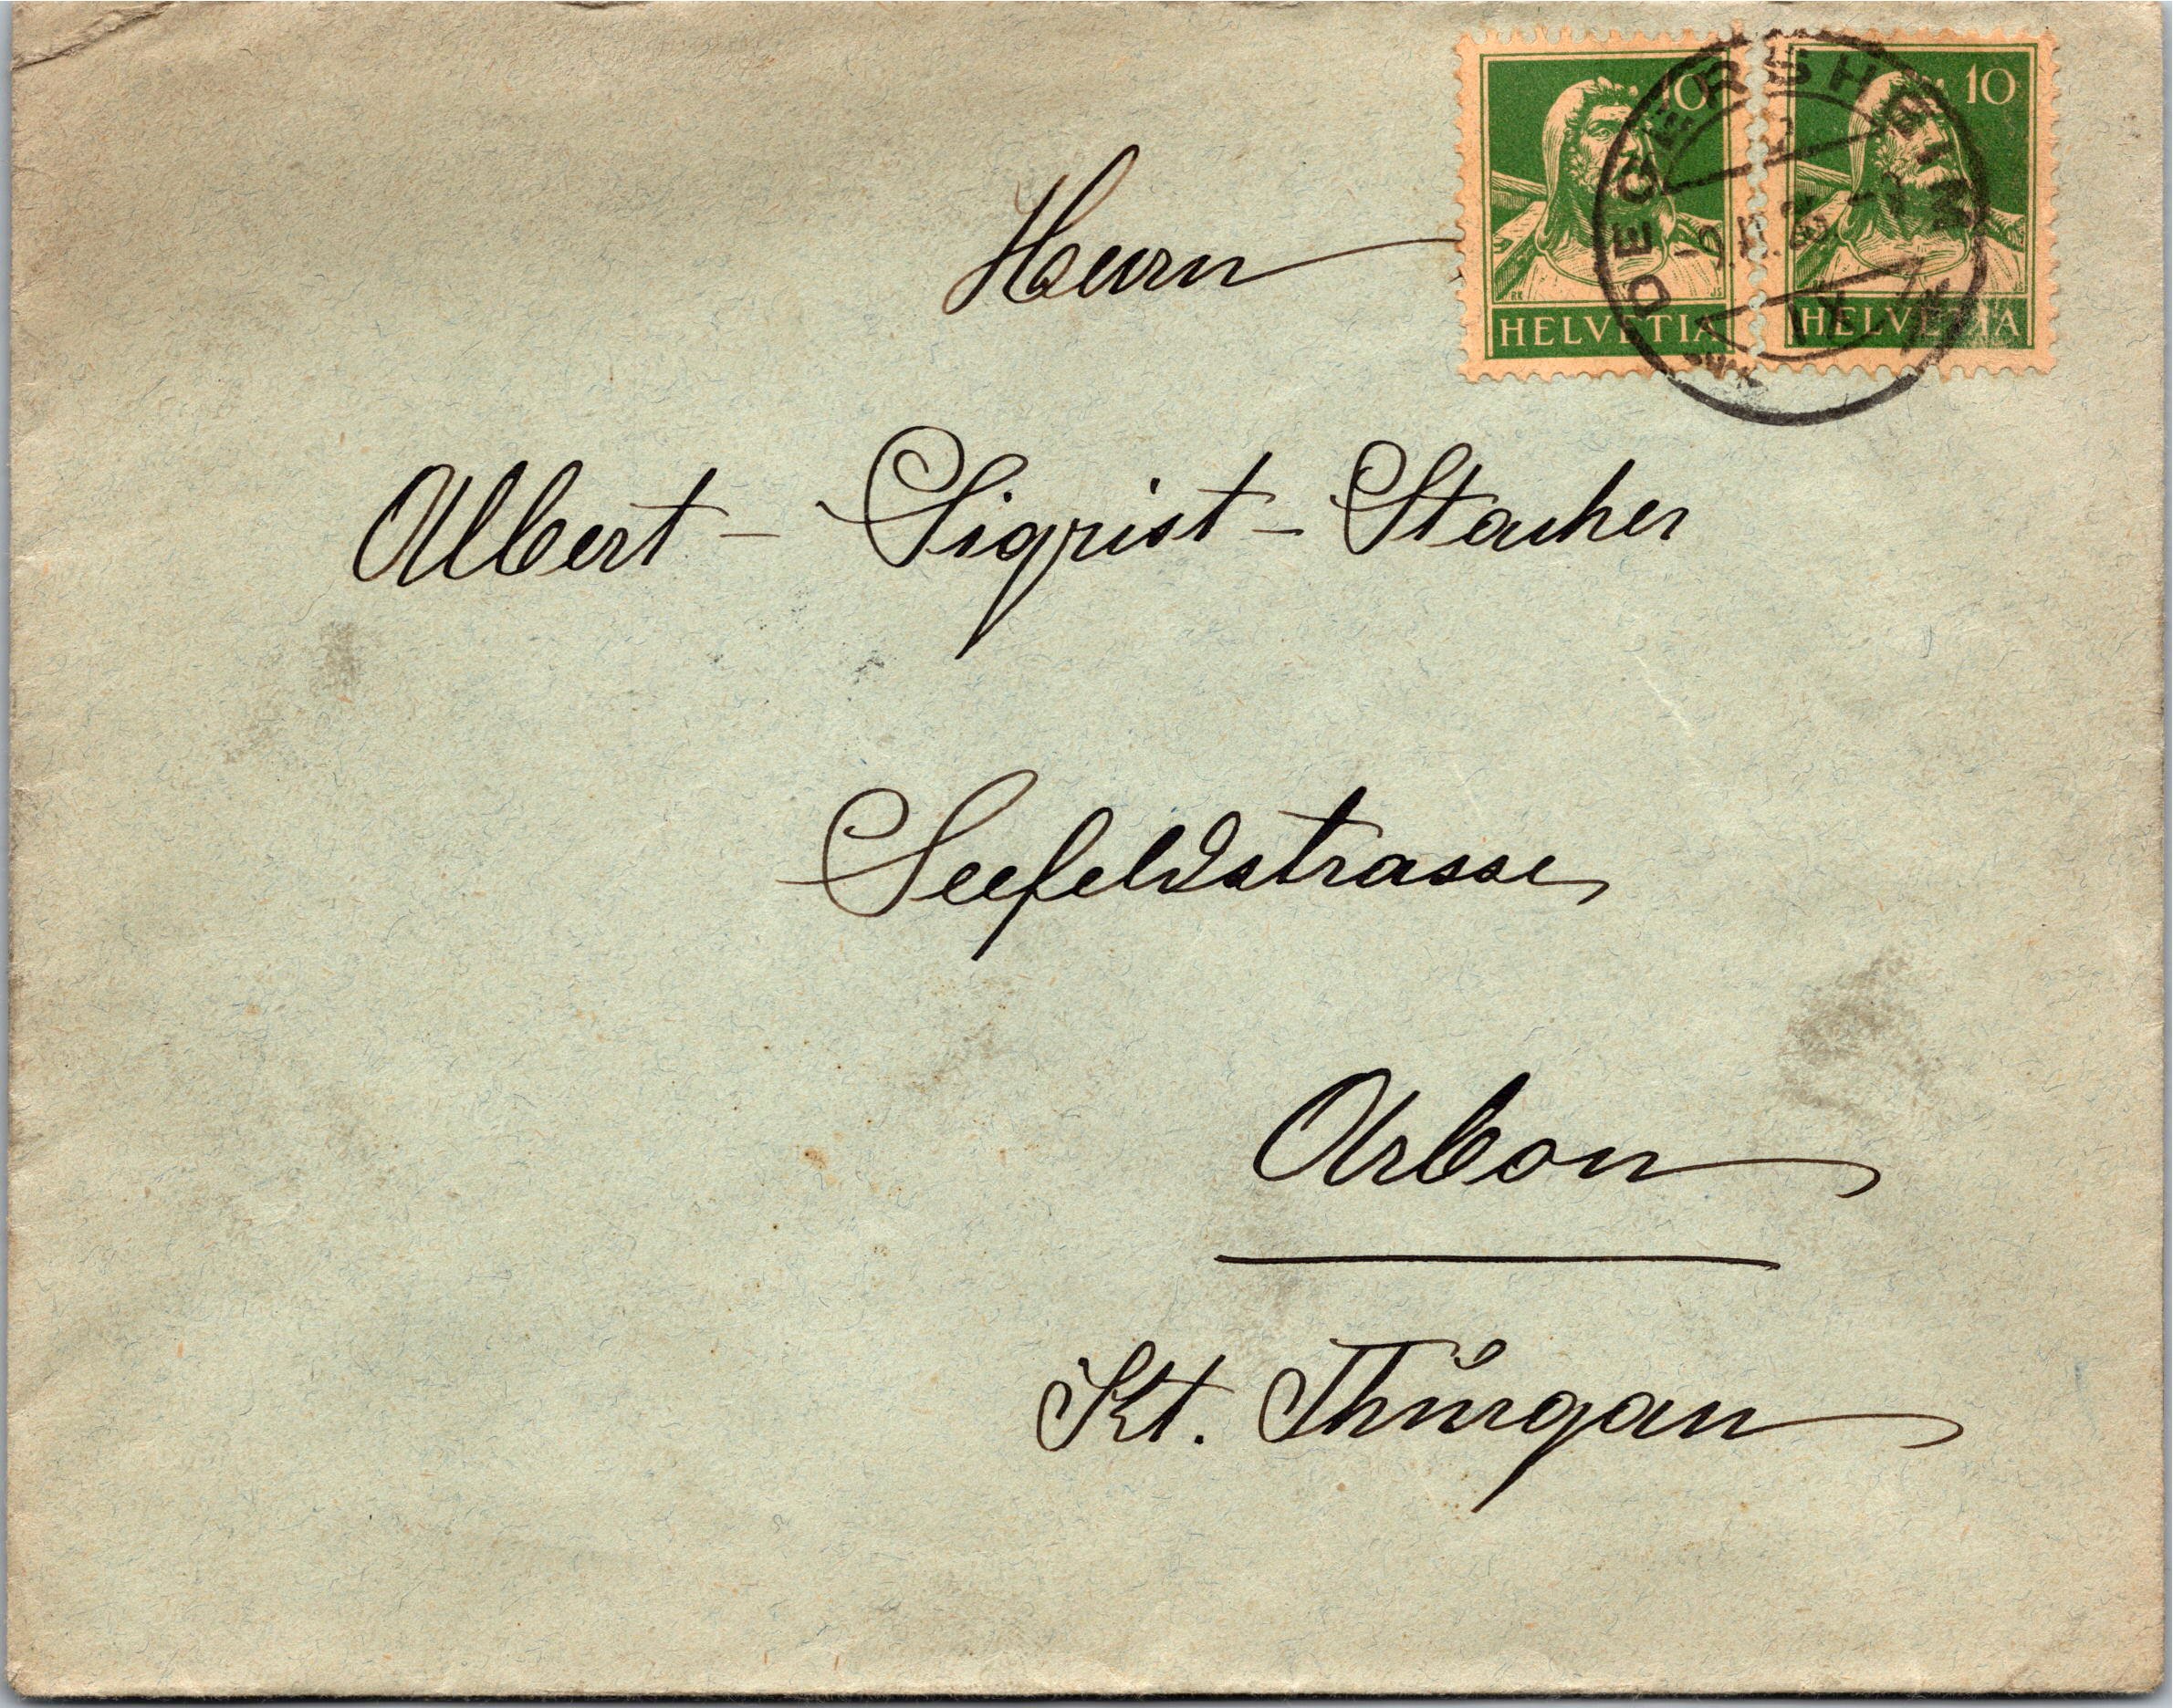 10 10
HELVETIA HELVETIA
DEGERSHEIM
Herrn
Albert - Sigrist - Stacher
Seefeldstrasse
Arbon
Kt. Thŭrgau